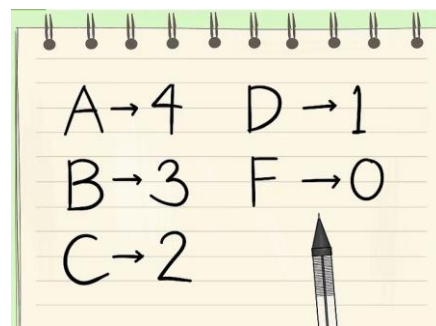 A→4
B→3
C→2
D→1
F→0